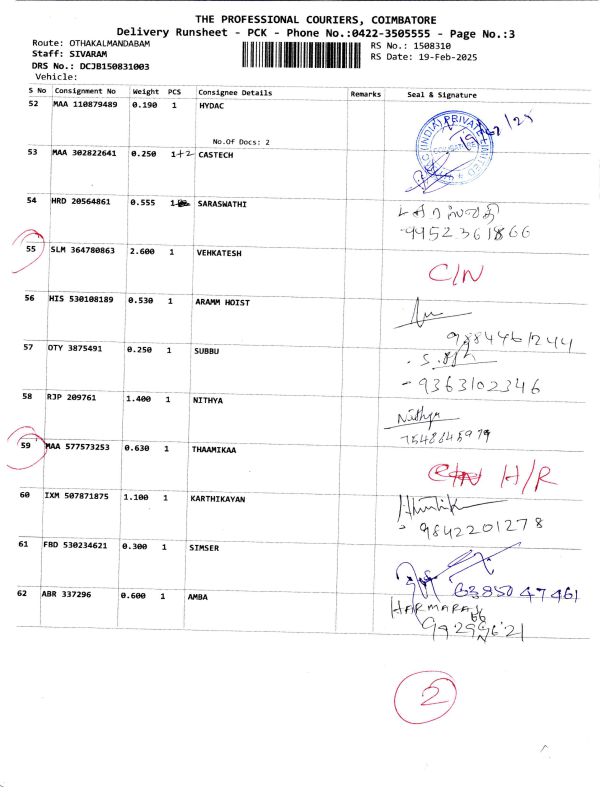 THE PROFESSIONAL COURIERS, COIMBATORE
Delivery Runsheet - PCK - Phone No.:0422-3505555 - Page No.:3
Route: OTHAKALMANDABAM
RS No.: 1508310
Staff: SIVARAM
RS Date: 19-Feb-2025
DRS No.: DCJB150831003
Vehicle:
S No Consignment No Weight PCS Consignee Details Remarks Seal & Signature
52 MAA 110879489 0.190 1 HYDAC
No.Of Docs: 2
53 MAA 302822641 0.250 1+2 CASTECH
54 HRD 20564861 0.555 1 SARASWATHI
9952361866
55 SLM 364780863 2.600 1 VEHKATESH
C/N
56 HIS 530108189 0.530 1 ARAMM HOIST
9884461244
57 OTY 3875491 0.250 1 SUBBU
- 9363102346
58 RJP 209761 1.400 1 NITHYA
Nithya
59 MAA 577573253 0.630 1 THAAMIKAA
H/R
60 IXM 507871875 1.100 1 KARTHIKAYAN
- 9842201278
61 FBD 530234621 0.300 1 SIMSER
6385047461
62 ABR 337296 0.600 1 AMBA
2